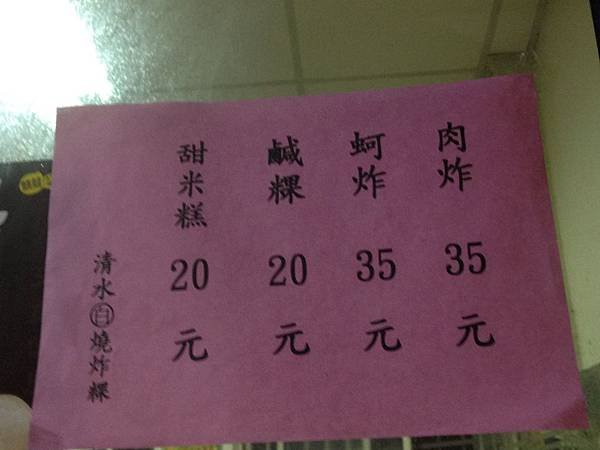 肉炸 35元
蚵炸 35元
鹹粿 20元
甜米糕 20元
清水㊒燒炸粿